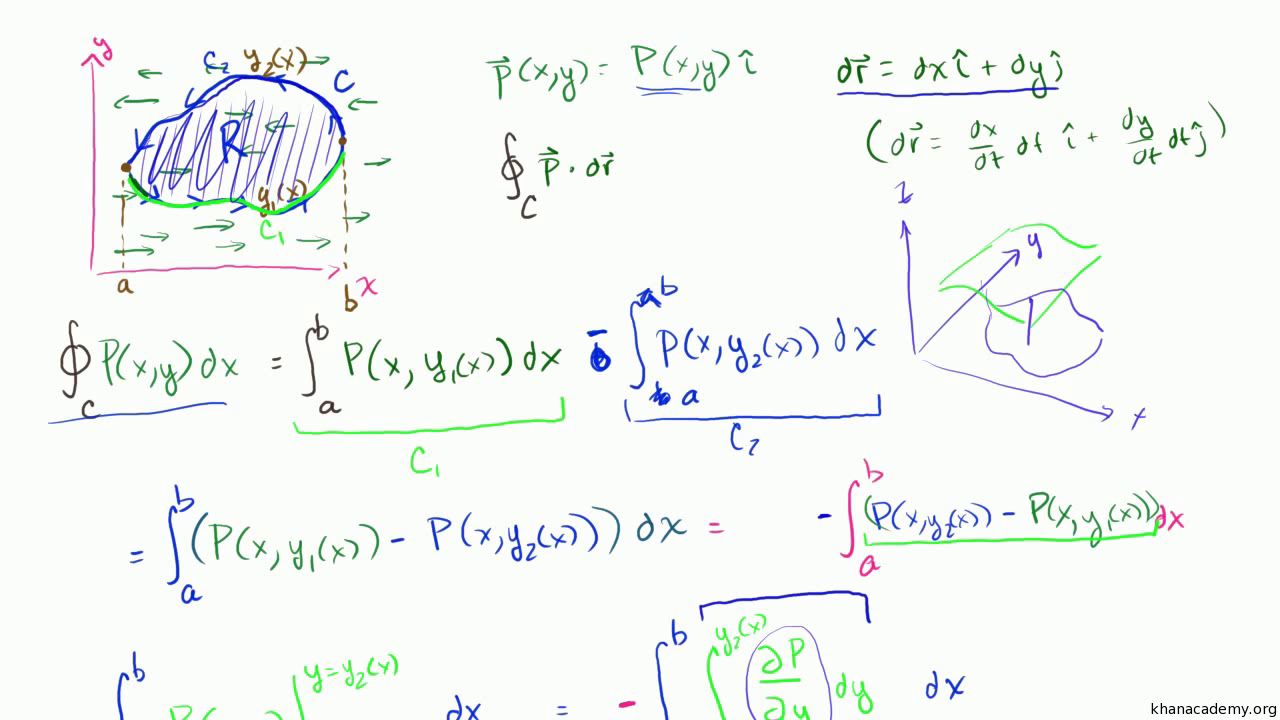 y
C₂ y₂(x) C
R
y₁(x)
C₁
a b x
P⃗(x,y) = P(x,y) î
dr⃗ = dx î + dy ĵ
(dr⃗ = dx/dt dt î + dy/dt dt ĵ)
∮_C P⃗ · dr⃗
z
y
x
∮_C P(x,y) dx = ∫_a^b P(x, y₁(x)) dx - ∫_a^b P(x, y₂(x)) dx
C₁ C₂
= ∫_a^b (P(x, y₁(x)) - P(x, y₂(x))) dx = - ∫_a^b (P(x, y₂(x)) - P(x, y₁(x))) dx
b y = y₂(x) dx = - ∫^b ∫^{y₂(x)} ∂P/∂y dy dx
khanacademy.org